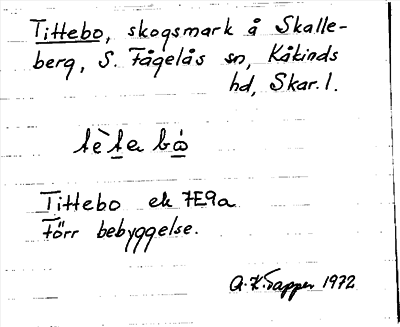 Tittebo, skogsmark å Skalle-
berg, S. Fågelås sn, Kåkinds
hd, Skar. l.
Tittebo ek 7E9a
Förr bebyggelse.
A. K. Tapper 1972